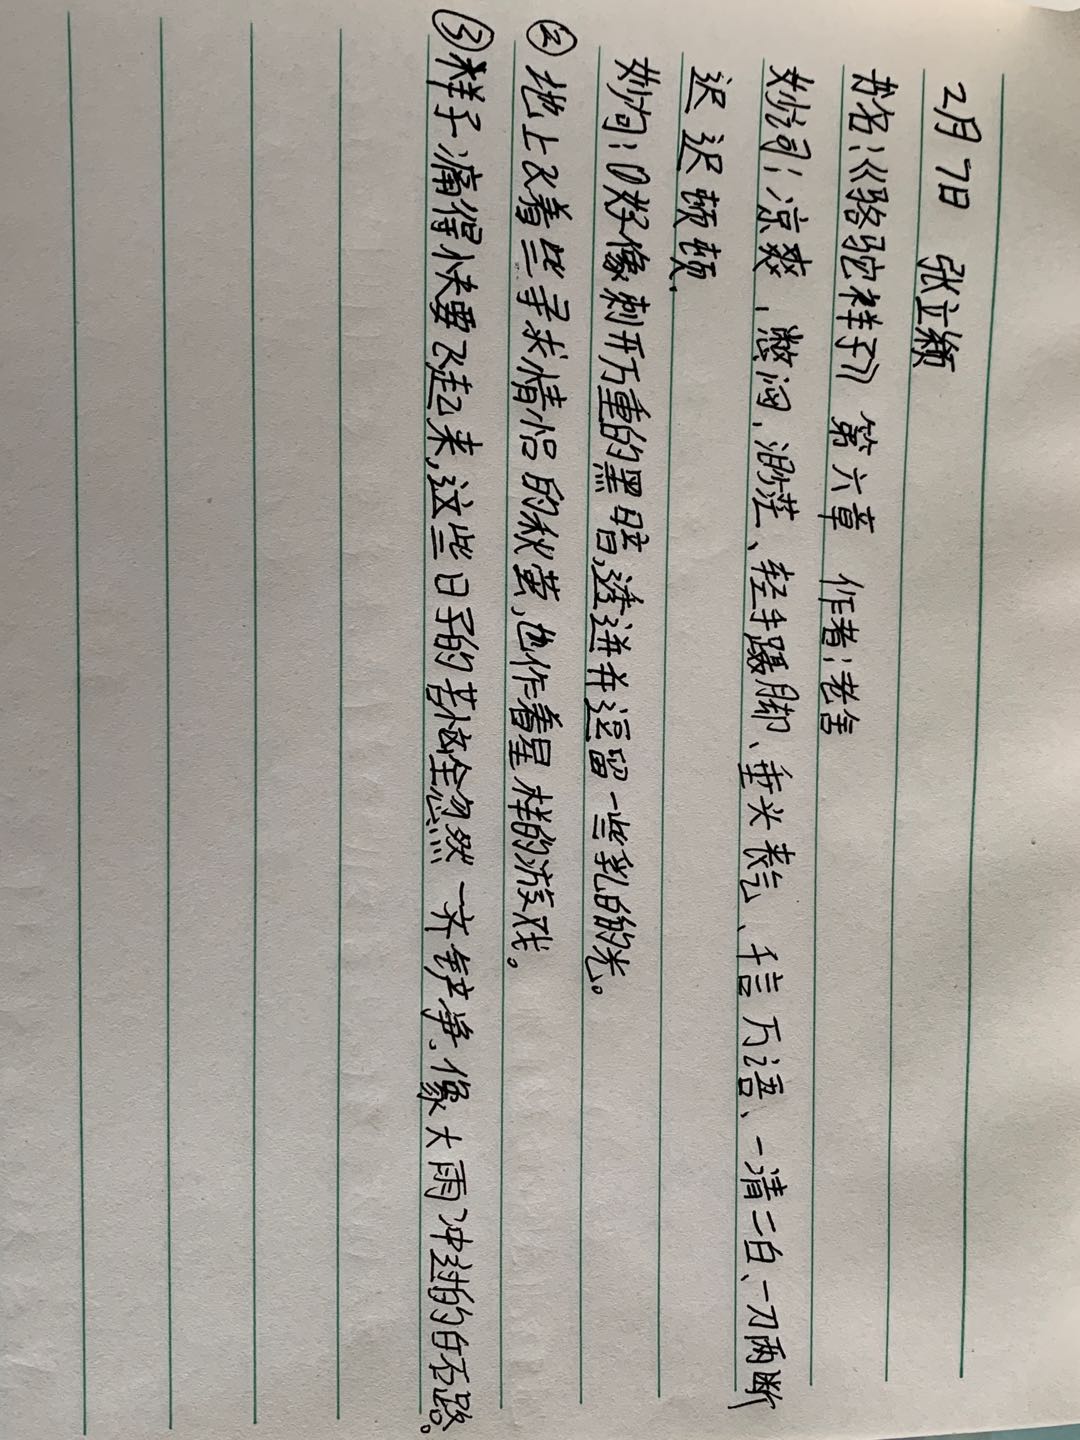 2月7日 张立颖
书名:《骆驼祥子》 第六章 作者:老舍
妙词:凉爽、憋闷、渺茫、轻手蹑脚、垂头丧气、千言万语、一清二白、一刀两断
迟迟顿顿.
妙句:①好像刺开万重的黑暗,透进并逗留一些乳白的光。
②地上飞着些寻求情侣的秋萤,也作着星样的游戏。
③祥子痛得快要飞起来,这些日子的苦恼全忽然一齐铲净,像大雨冲过的白石路。